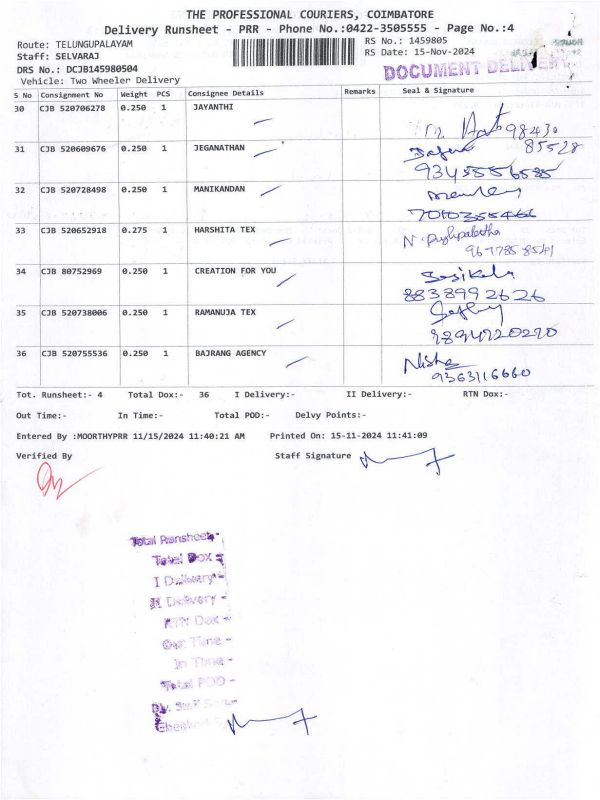 THE PROFESSIONAL COURIERS, COIMBATORE
Delivery Runsheet - PRR - Phone No.:0422-3505555 - Page No.:4
Route: TELUNGUPALAYAM
RS No.: 1459805
Staff: SELVARAJ
RS Date: 15-Nov-2024
DRS No.: DCJB145980504
DOCUMENT DELIVERY
Vehicle: Two Wheeler Delivery
S No Consignment No Weight PCS Consignee Details Remarks Seal & Signature
30 CJB 520706278 0.250 1 JAYANTHI
98430
85528
31 CJB 520609676 0.250 1 JEGANATHAN
9345556585
32 CJB 520728498 0.250 1 MANIKANDAN
7010355466
33 CJB 520652918 0.275 1 HARSHITA TEX
9677858541
34 CJB 80752969 0.250 1 CREATION FOR YOU Sasikala
8838992626
35 CJB 520738006 0.250 1 RAMANUJA TEX
9894720220
36 CJB 520755536 0.250 1 BAJRANG AGENCY Nisha
9363116660
Tot. Runsheet:- 4 Total Dox:- 36 I Delivery:- II Delivery:- RTN Dox:-
Out Time:- In Time:- Total POD:- Delvy Points:-
Entered By :MOORTHYPRR 11/15/2024 11:40:21 AM Printed On: 15-11-2024 11:41:09
Verified By Staff Signature
Total Runsheet-
Total Dox -
I Delivery -
II Delivery -
RTN Dox -
Out Time -
In Time -
Total POD -